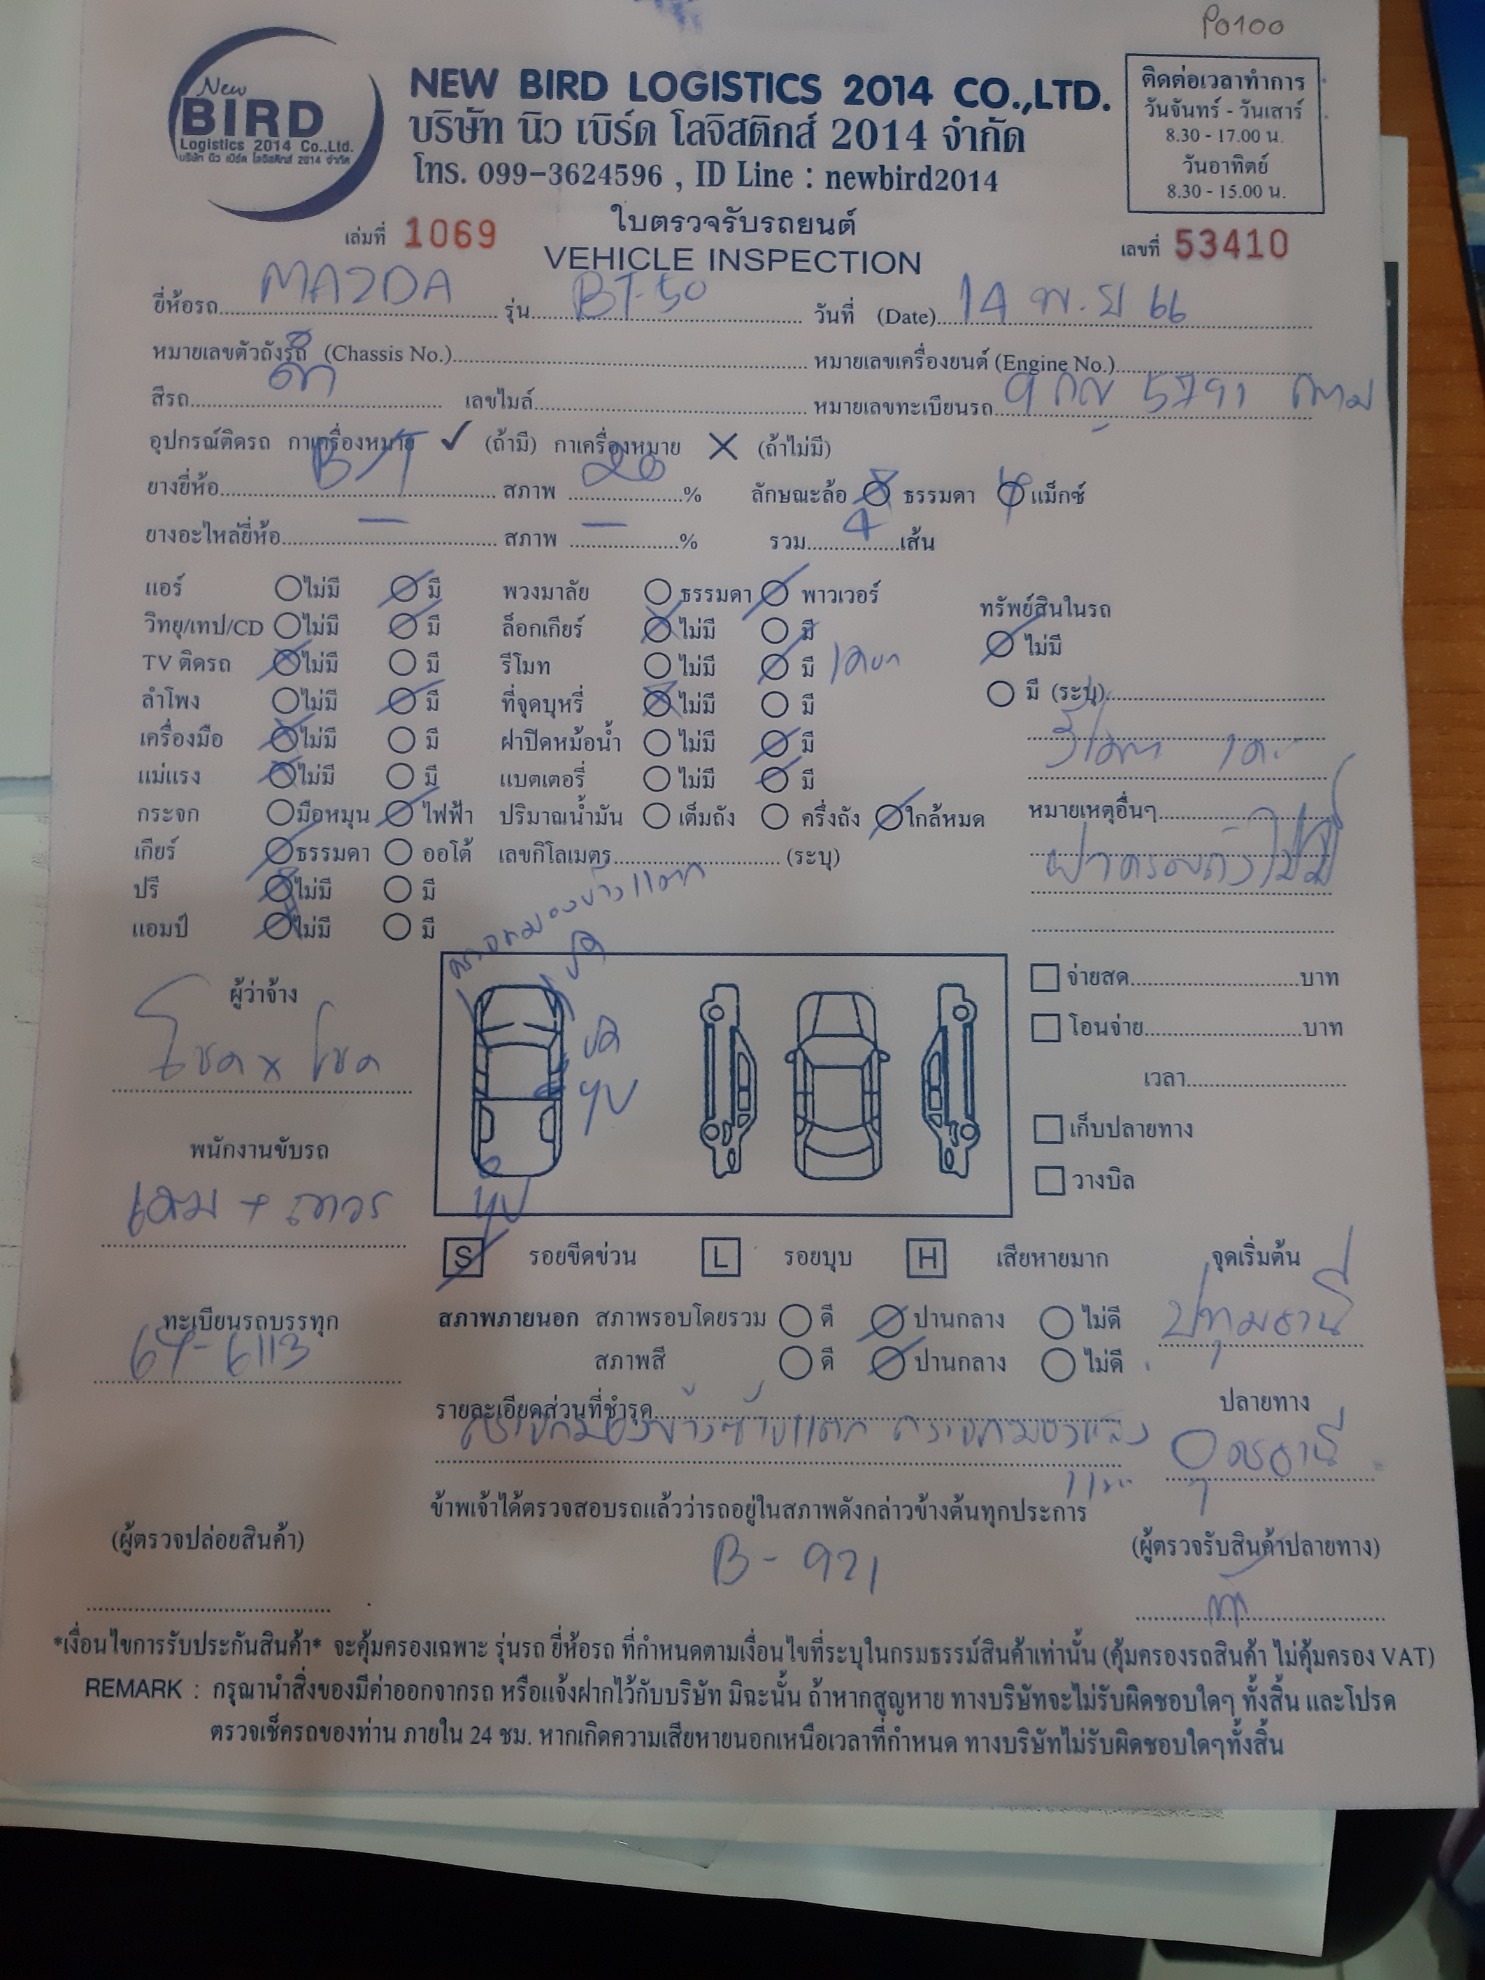 P0100
New
BIRD
Logistics 2014 Co.,Ltd.
บริษัท นิว เบิร์ด โลจิสติกส์ 2014 จำกัด
NEW BIRD LOGISTICS 2014 CO.,LTD.
บริษัท นิว เบิร์ด โลจิสติกส์ 2014 จำกัด
โทร. 099-3624596 , ID Line : newbird2014
ติดต่อเวลาทำการ
วันจันทร์ - วันเสาร์
8.30 - 17.00 น.
วันอาทิตย์
8.30 - 15.00 น.
ใบตรวจรับรถยนต์
เล่มที่ 1069
VEHICLE INSPECTION
เลขที่ 53410
ยี่ห้อรถ MAZDA รุ่น BT-50 วันที่ (Date) 14 พ.ย 66
หมายเลขตัวถังรถ (Chassis No.) หมายเลขเครื่องยนต์ (Engine No.)
สีรถ ดำ เลขไมล์ หมายเลขทะเบียนรถ 5791
อุปกรณ์ติดรถ กาเครื่องหมาย ✓ (ถ้ามี) กาเครื่องหมาย ✕ (ถ้าไม่มี)
ยางยี่ห้อ B/T สภาพ 20 % ลักษณะล้อ ธรรมดา แม็กซ์
ยางอะไหล่ยี่ห้อ — สภาพ — % รวม 4 เส้น
แอร์ ไม่มี มี พวงมาลัย ธรรมดา พาวเวอร์
ทรัพย์สินในรถ
วิทยุ/เทป/CD ไม่มี มี ล็อกเกียร์ ไม่มี มี
ไม่มี
TV ติดรถ ไม่มี มี รีโมท ไม่มี มี
ลำโพง ไม่มี มี ที่จุดบุหรี่ ไม่มี มี
มี (ระบุ)
เครื่องมือ ไม่มี มี ฝาปิดหม้อน้ำ ไม่มี มี
รีโมท
แม่แรง ไม่มี มี แบตเตอรี่ ไม่มี มี
กระจก มือหมุน ไฟฟ้า ปริมาณน้ำมัน เต็มถัง ครึ่งถัง ใกล้หมด
หมายเหตุอื่นๆ
เกียร์ ธรรมดา ออโต้ เลขกิโลเมตร (ระบุ)
ปรี ไม่มี มี
แอมป์ ไม่มี มี
กระจกมองข้างแตก
ผู้ว่าจ้าง
โชค x โชค
บุบ
บุบ
จ่ายสด บาท
โอนจ่าย บาท
เวลา
เก็บปลายทาง
วางบิล
พนักงานขับรถ
S รอยขีดข่วน L รอยบุบ H เสียหายมาก
จุดเริ่มต้น
ปทุมธานี
ทะเบียนรถบรรทุก
64-6113
สภาพภายนอก สภาพรอบโดยรวม ดี ปานกลาง ไม่ดี
สภาพสี ดี ปานกลาง ไม่ดี
ปลายทาง
อุดรธานี
รายละเอียดส่วนที่ชำรุด
กระจกมองข้างซ้ายแตก กระจกมองหลัง
ข้าพเจ้าได้ตรวจสอบรถแล้วว่ารถอยู่ในสภาพดังกล่าวข้างต้นทุกประการ
(ผู้ตรวจปล่อยสินค้า)
(ผู้ตรวจรับสินค้าปลายทาง)
B-921
*เงื่อนไขการรับประกันสินค้า* จะคุ้มครองเฉพาะ รุ่นรถ ยี่ห้อรถ ที่กำหนดตามเงื่อนไขที่ระบุในกรมธรรม์สินค้าเท่านั้น (คุ้มครองรถสินค้า ไม่คุ้มครอง VAT)
REMARK : กรุณานำสิ่งของมีค่าออกจากรถ หรือแจ้งฝากไว้กับบริษัท มิฉะนั้น ถ้าหากสูญหาย ทางบริษัทจะไม่รับผิดชอบใดๆ ทั้งสิ้น และโปรด
ตรวจเช็ครถของท่าน ภายใน 24 ชม. หากเกิดความเสียหายนอกเหนือเวลาที่กำหนด ทางบริษัทไม่รับผิดชอบใดๆทั้งสิ้น